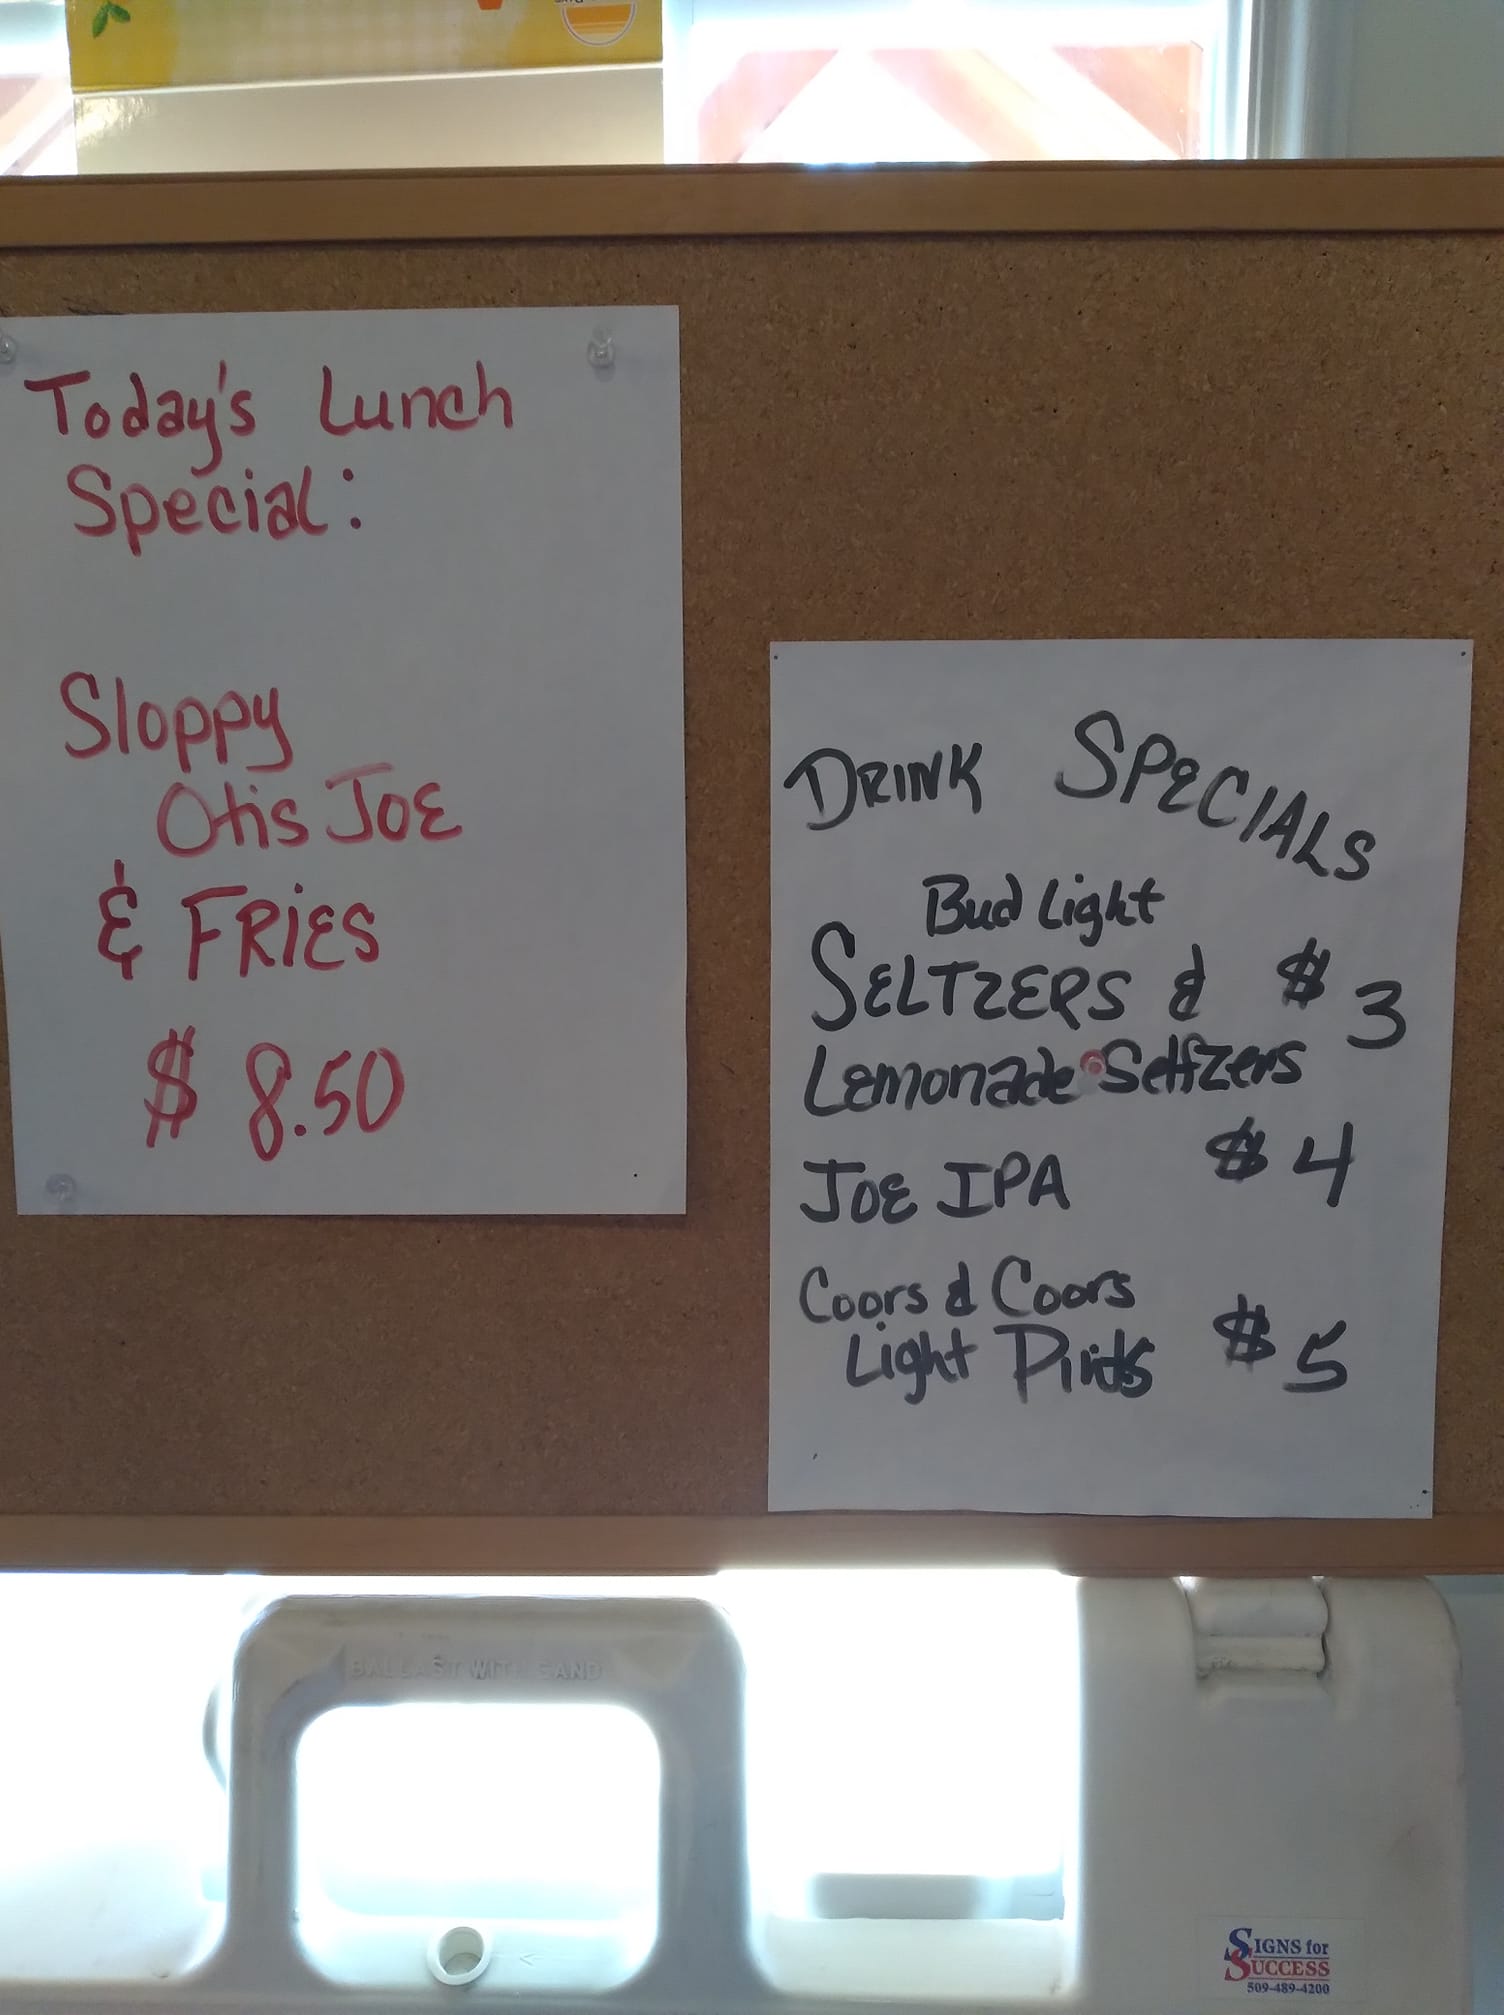 Today's Lunch
Special:
Sloppy
Otis JOE
& FRIES
$ 8.50
DRINK SPECIALS
Bud Light
SELTZERS & $3
Lemonade Seltzers
JOE IPA $4
Coors & Coors
Light Pints $5
BALLAST WITH SAND
SIGNS for
SUCCESS
509-489-4200